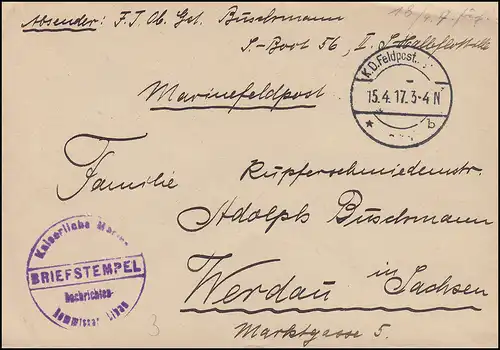 Absender: F.T. Ob. Gst. Buschmann
S-Boot 56, II. S. Halbflottille
K.D. Feldpost.
15.4.17. 3-4 N
* b
Marinefeldpost
Familie
Kupferschmiedemstr.
Adolph Buschmann
Werdau in Sachsen
Marktgasse 5.
Kaiserliche Marine
BRIEFSTEMPEL
Nachrichten-
Kommissar Libau
3